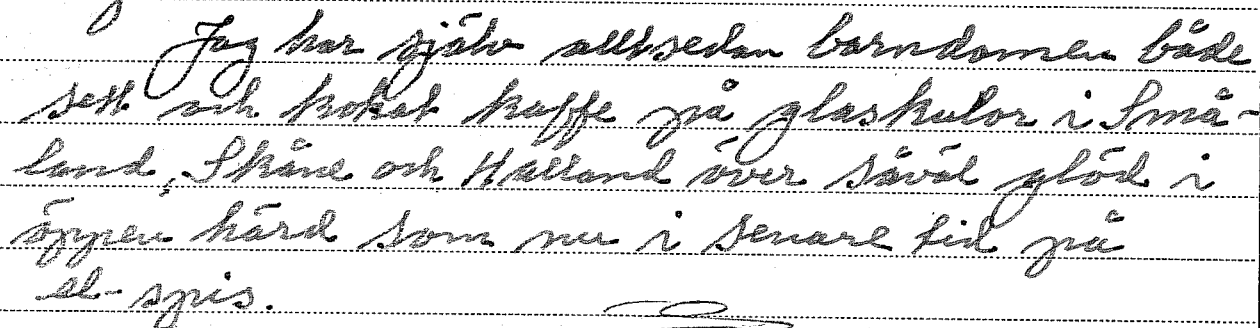 Jag har själv alltsedan barndomen både
sett och kokat kaffe på glaskulor i Små-
land, Skåne och Halland över såväl glöd i
öppen härd som nu i senare tid på
el-spis.